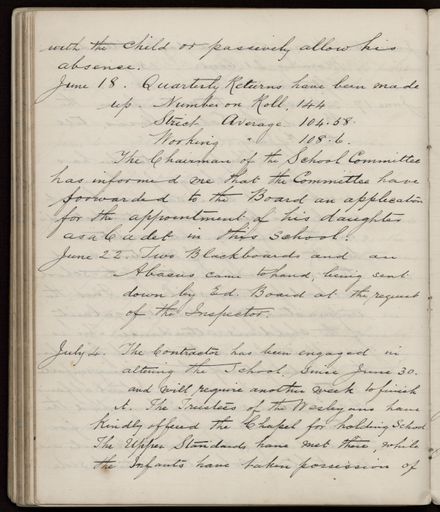 with the child or passively allow his
absence.
June 18. Quarterly Returns have been made
up. Number on Roll, 144
Strict Average 104.58.
Working " 108.6.
The Chairman of the School Committee
has informed me that the Committee have
forwarded to the Board an application
for the appointment of his daughter
as a Cadet in this school.
June 22 Two Blackboards and an
Abacus came to hand, being sent
down by Ed. Board at the request
of the Inspector.
July 4. The Contractor has been engaged in
altering the School since June 30.
and will require another week to finish
it. The Trustees of the Wesleyans have
kindly offered the Chapel for holding School
The Upper Standards have met there, while
the Infants have taken possession of